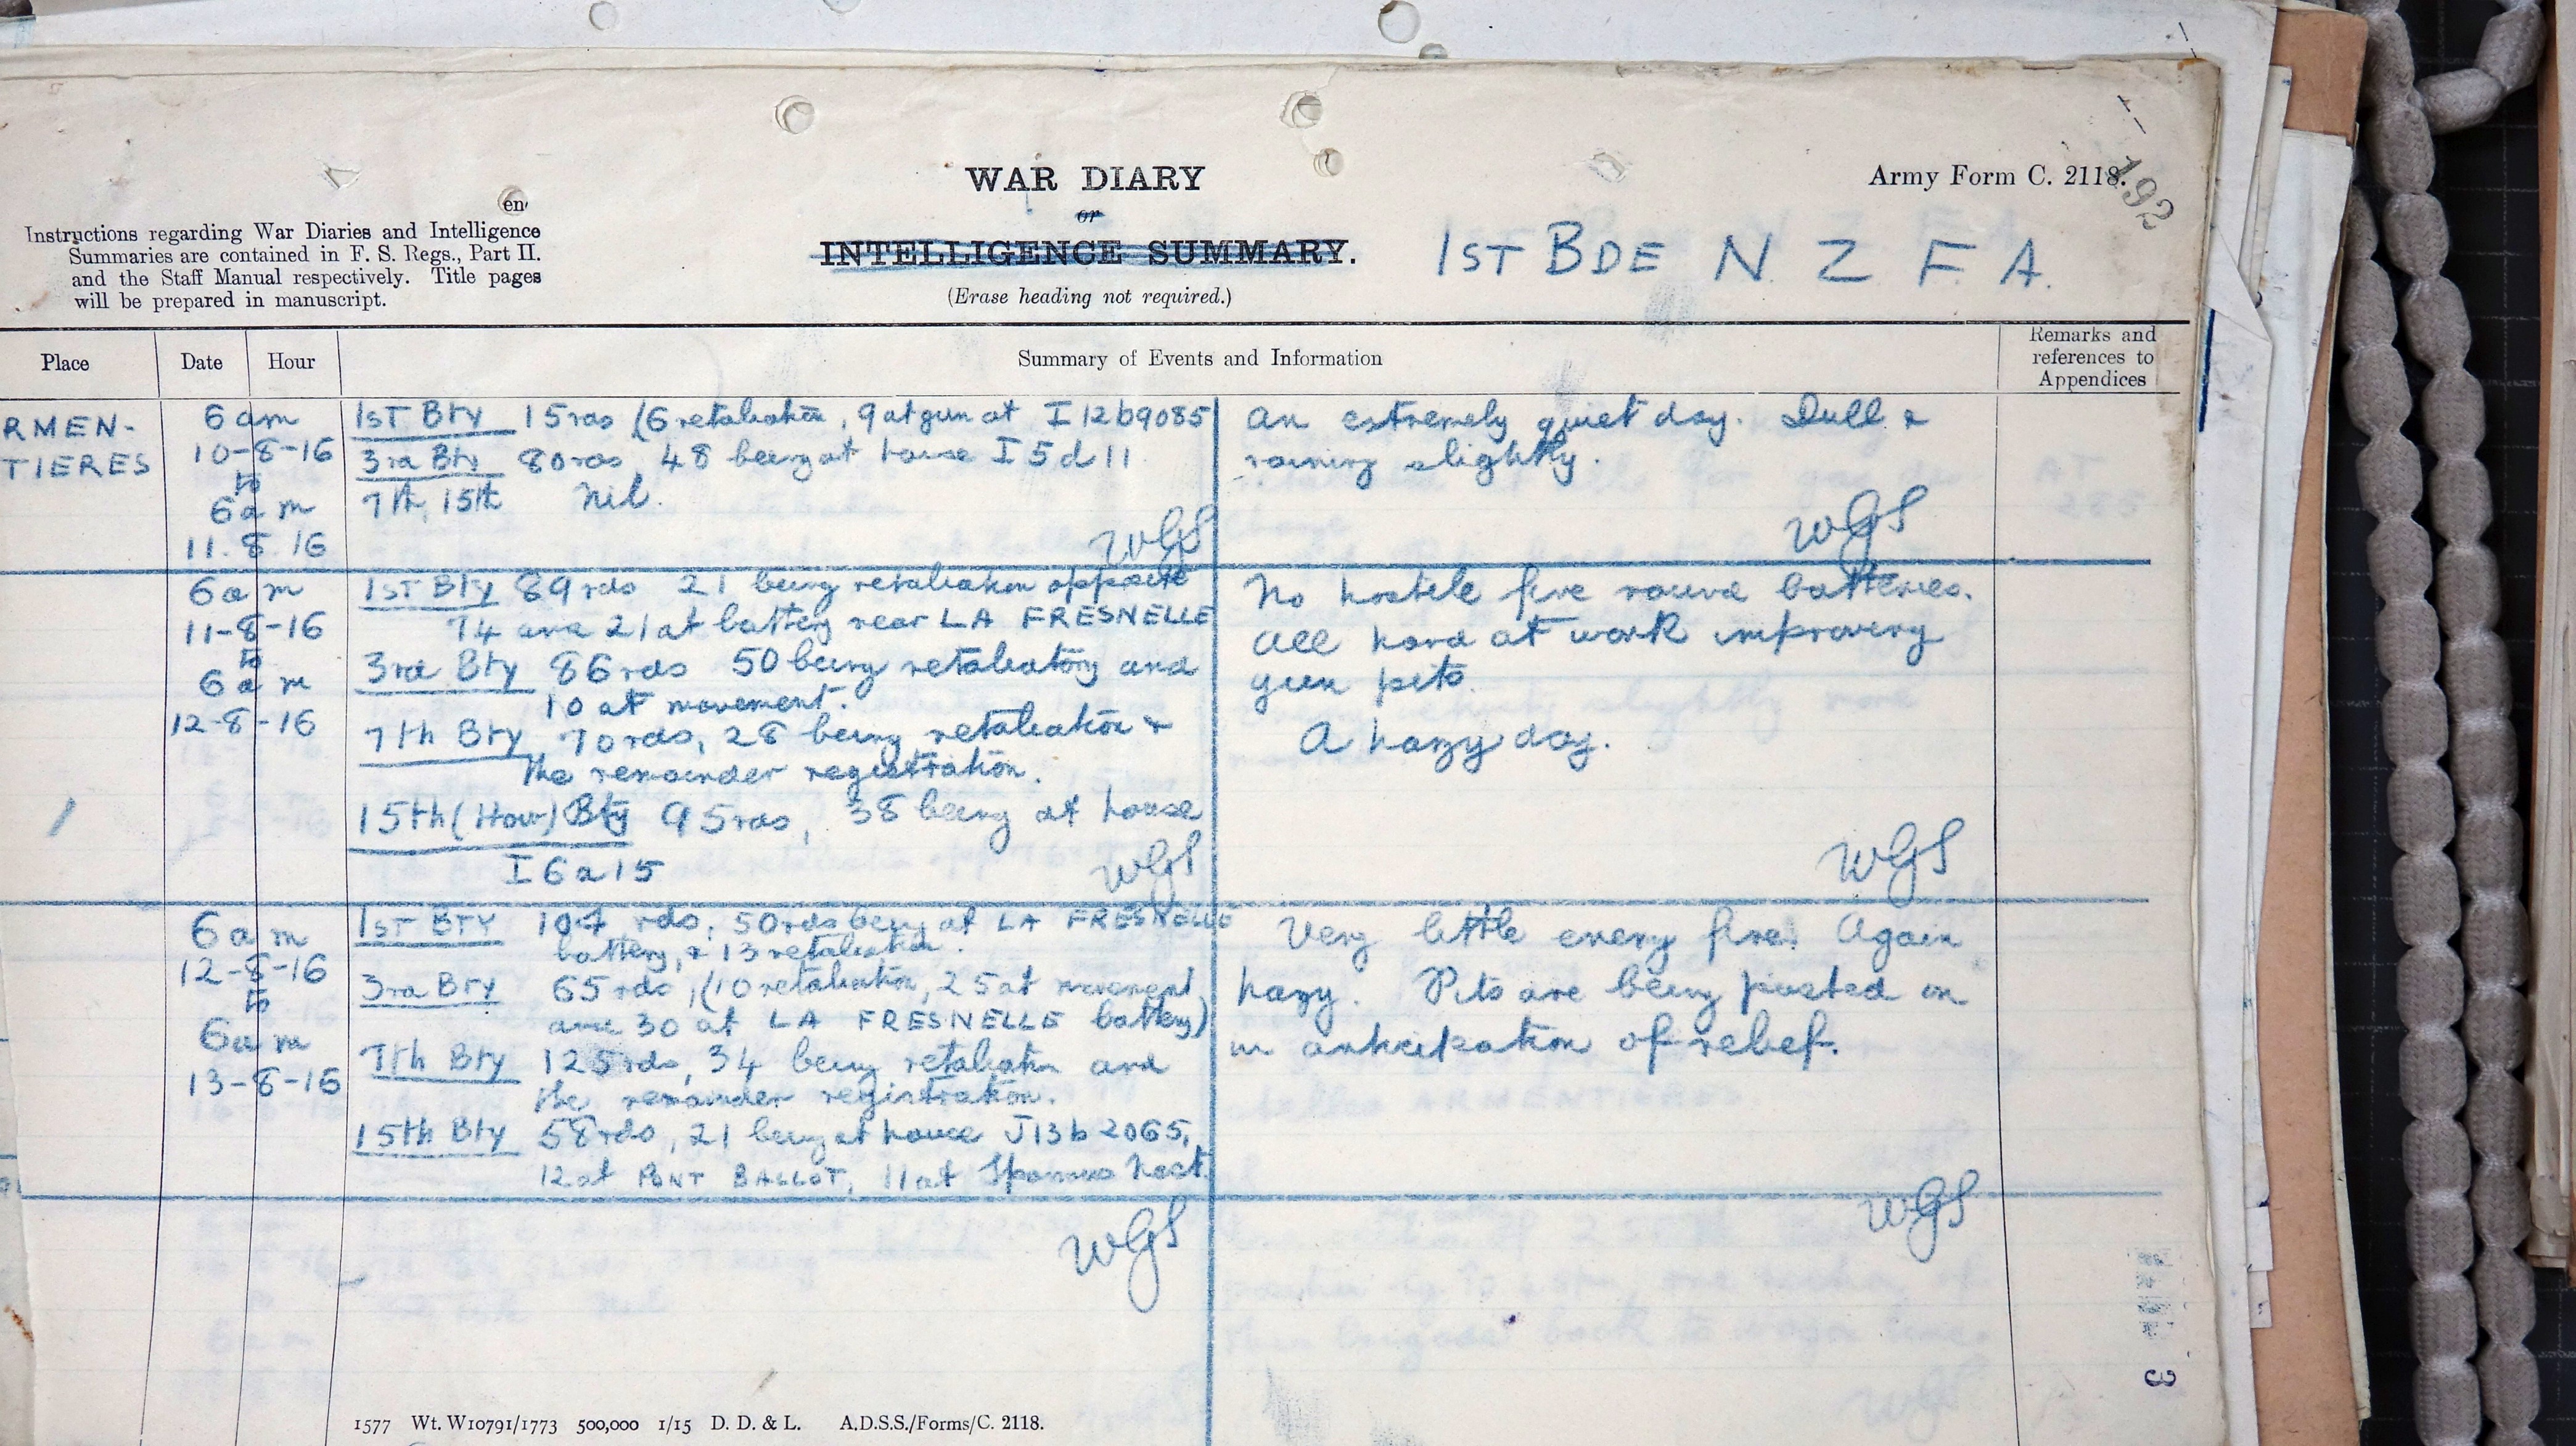 WAR DIARY
or
INTELLIGENCE SUMMARY.
(Erase heading not required.)
Army Form C. 2118.
192
1ST BDE N Z F A.
en
Instructions regarding War Diaries and Intelligence
Summaries are contained in F. S. Regs., Part II.
and the Staff Manual respectively. Title pages
will be prepared in manuscript.
Place
Date
Hour
Summary of Events and Information
Remarks and
references to
Appendices
RMEN-
TIERES
6 am
10-8-16
to
6 a m
11.8.16
1ST Bty 15 rds (6 retaliation, 9 at gun at I 12 b9085
3rd Bty 80 rds, 48 being at house I 5 d 11
7th, 15th Nil.
WGS
An extremely quiet day. Dull &
raining slightly.
WGS
6 a m
11-8-16
to
6 a m
12-8-16
1ST Bty 89 rds 21 being retaliation opposite
74 and 21 at battery near LA FRESNELLE
3rd Bty 86 rds 50 being retaliatory and
10 at movement.
7th Bty, 70 rds, 28 being retaliation &
the remainder registration.
15th (How) Bty 95 rds, 38 being at house
I 6 a 15
WGS
No hostile fire round batteries.
All hard at work improving
gun pits.
A hazy day.
WGS
6 a m
12-8-16
to
6 a m
13-8-16
1ST BTY 104 rds, 50 rds being at LA FRESNELLE
battery, & 13 retaliation.
3rd Bty 65 rds, (10 retaliation, 25 at movement
and 30 at LA FRESNELLE battery)
7th Bty 125 rds, 34 being retaliation and
the remainder registration.
15th Bty 58 rds, 21 being at house J13 b 2065,
12 at PONT BALLOT, 11 at
WGS
Very little enemy fire. Again
hazy. Pits are being pushed on
in anticipation of relief.
WGS
3
1577 Wt. W10791/1773 500,000 1/15 D. D. & L. A.D.S.S./Forms/C. 2118.